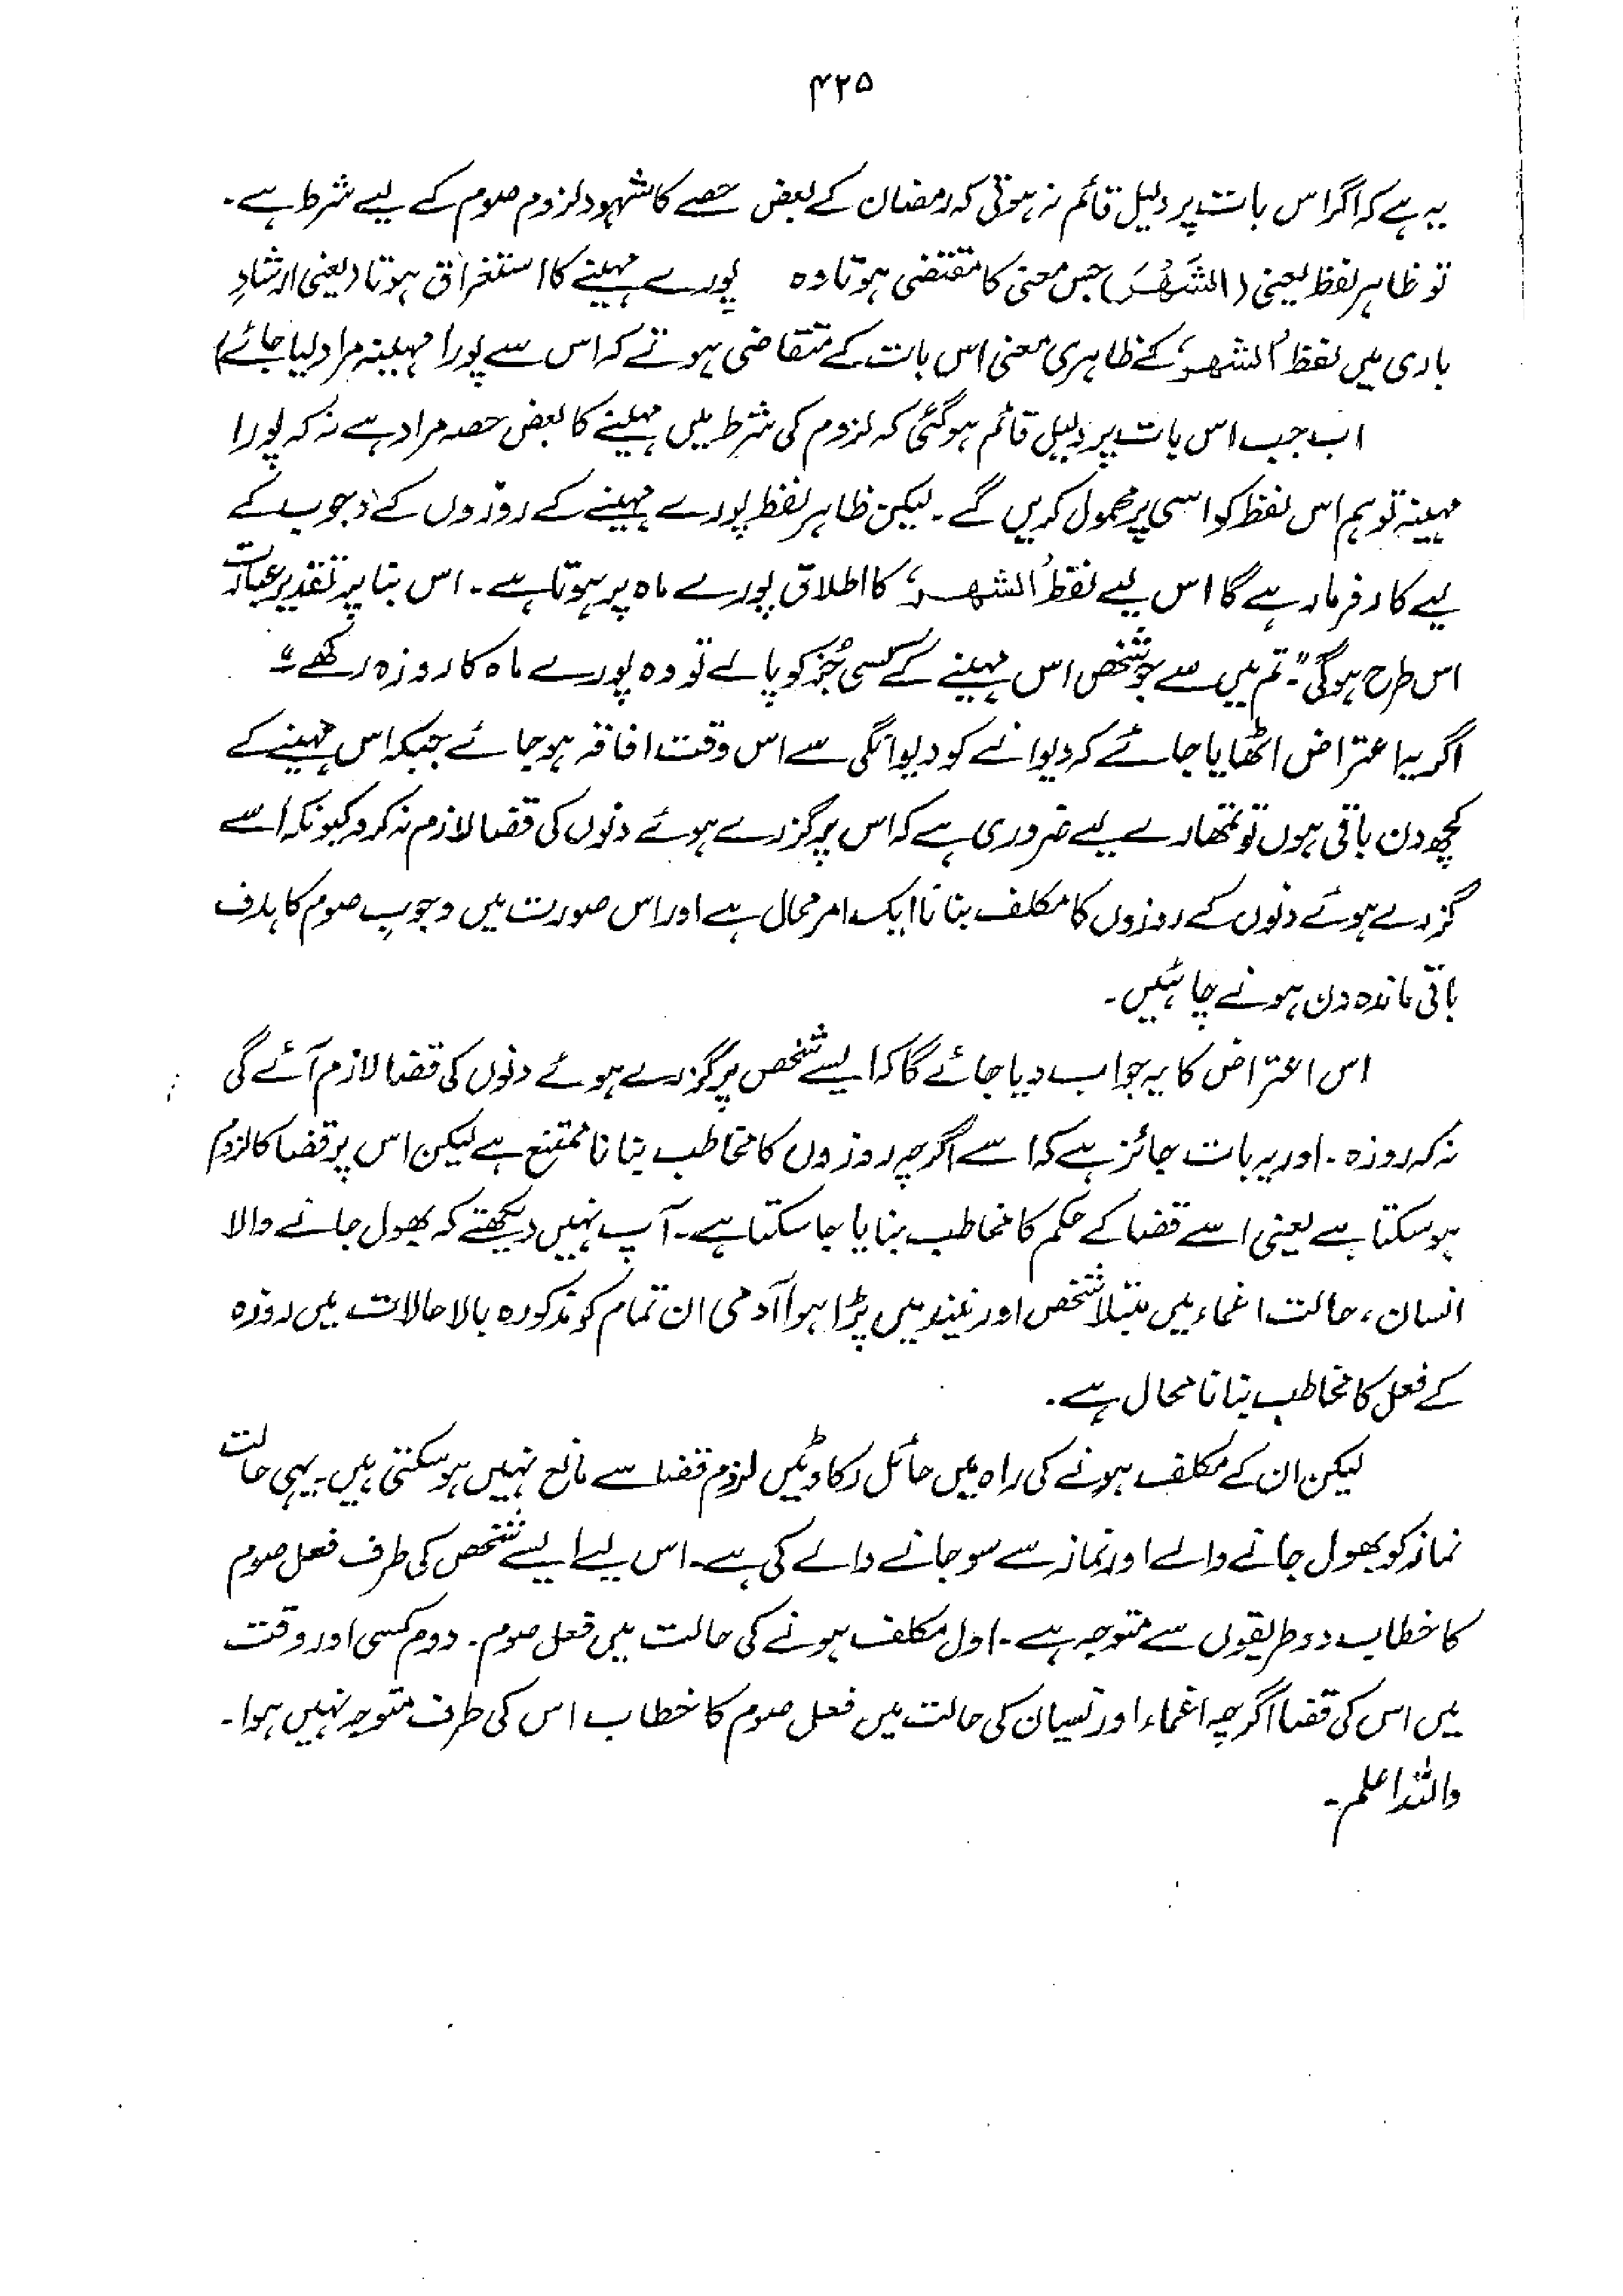 ۴۲۵
یہ ہے کہ اگر اس بات پر دلیل قائم نہ ہوتی کہ رمضان کے بعض حصے کا شہود لزوم صوم کے لیے شرط ہے۔
تو ظاہر لفظ یعنی (الشَّهْرَ) جس معنی کا مقتضی ہوتا وہ پورے مہینے کا استغراق ہوتا (یعنی ارشادِ
باری میں لفظ 'الشہر' کے ظاہری معنی اس بات کے متقاضی ہوتے کہ اس سے پورا مہینہ مراد لیا جائے)
اب جب اس بات پر دلیل قائم ہوگئی کہ لزوم کی شرط میں مہینے کا بعض حصہ مراد ہے نہ کہ پورا
مہینہ تو ہم اس لفظ کو اسی پر محمول کریں گے۔ لیکن ظاہر لفظ پورے مہینے کے روزوں کے وجوب کے
لیے کارفرما رہے گا اس لیے لفظ 'الشہر' کا اطلاق پورے ماہ پر ہوتا ہے۔ اس بنا پر تقدیر عبارت
اس طرح ہوگی "۔ تم میں سے جو شخص اس مہینے کے کسی جُز کو پالے تو وہ پورے ماہ کا روزہ رکھے"
اگر یہ اعتراض اٹھایا جائے کہ دیوانے کو دیوانگی سے اس وقت افاقہ ہو جائے جبکہ اس مہینے کے
کچھ دن باقی ہوں تو تمھارے لیے ضروری ہے کہ اس پر گزرے ہوئے دنوں کی قضا لازم نہ کرو کیونکہ اسے
گزرے ہوئے دنوں کے روزوں کا مکلف بنانا ایک امر محال ہے اور اس صورت میں وجوبِ صوم کا ہدف
باقی ماندہ دن ہونے چاہئیں۔
اس اعتراض کا یہ جواب دیا جائے گا کہ ایسے شخص پر گزرے ہوئے دنوں کی قضا لازم آئے گی
نہ کہ روزہ۔ اور یہ بات جائز ہے کہ اسے اگرچہ روزوں کا مخاطب بنانا ممتنع ہے لیکن اس پر قضا کا لزوم
ہو سکتا ہے یعنی اسے قضا کے حکم کا مخاطب بنایا جا سکتا ہے۔ آپ نہیں دیکھتے کہ بھول جانے والا
انسان، حالت اغماء میں مبتلا شخص اور نیند میں پڑا ہوا آدمی ان تمام کو مذکورہ بالا حالات میں روزہ
کے فعل کا مخاطب بنانا محال ہے۔
لیکن ان کے مکلف ہونے کی راہ میں حائل رکاوٹیں لزوم قضا سے مانع نہیں ہو سکتی ہیں۔ یہی حالت
نماز کو بھول جانے والے اور نماز سے سو جانے والے کی ہے۔ اس لیے ایسے شخص کی طرف فعل صوم
کا خطاب دو طریقوں سے متوجہ ہے۔ اول مکلف ہونے کی حالت میں فعل صوم۔ دوم کسی اور وقت
میں اس کی قضا اگرچہ اغماء اور نسیان کی حالت میں فعل صوم کا خطاب اس کی طرف متوجہ نہیں ہوا۔
واللہ اعلم۔